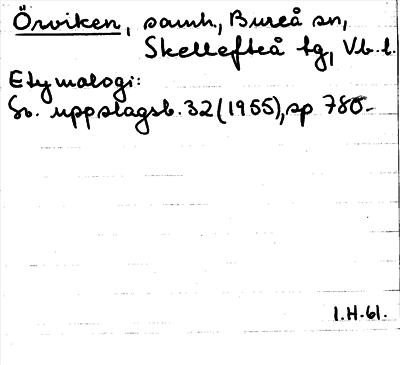 Örviken, samh., Bureå sn,
Skellefteå tg, Vb. l.
Etymologi:
Sv. uppslagsb. 32 (1955), sp 780.
I.H.61.